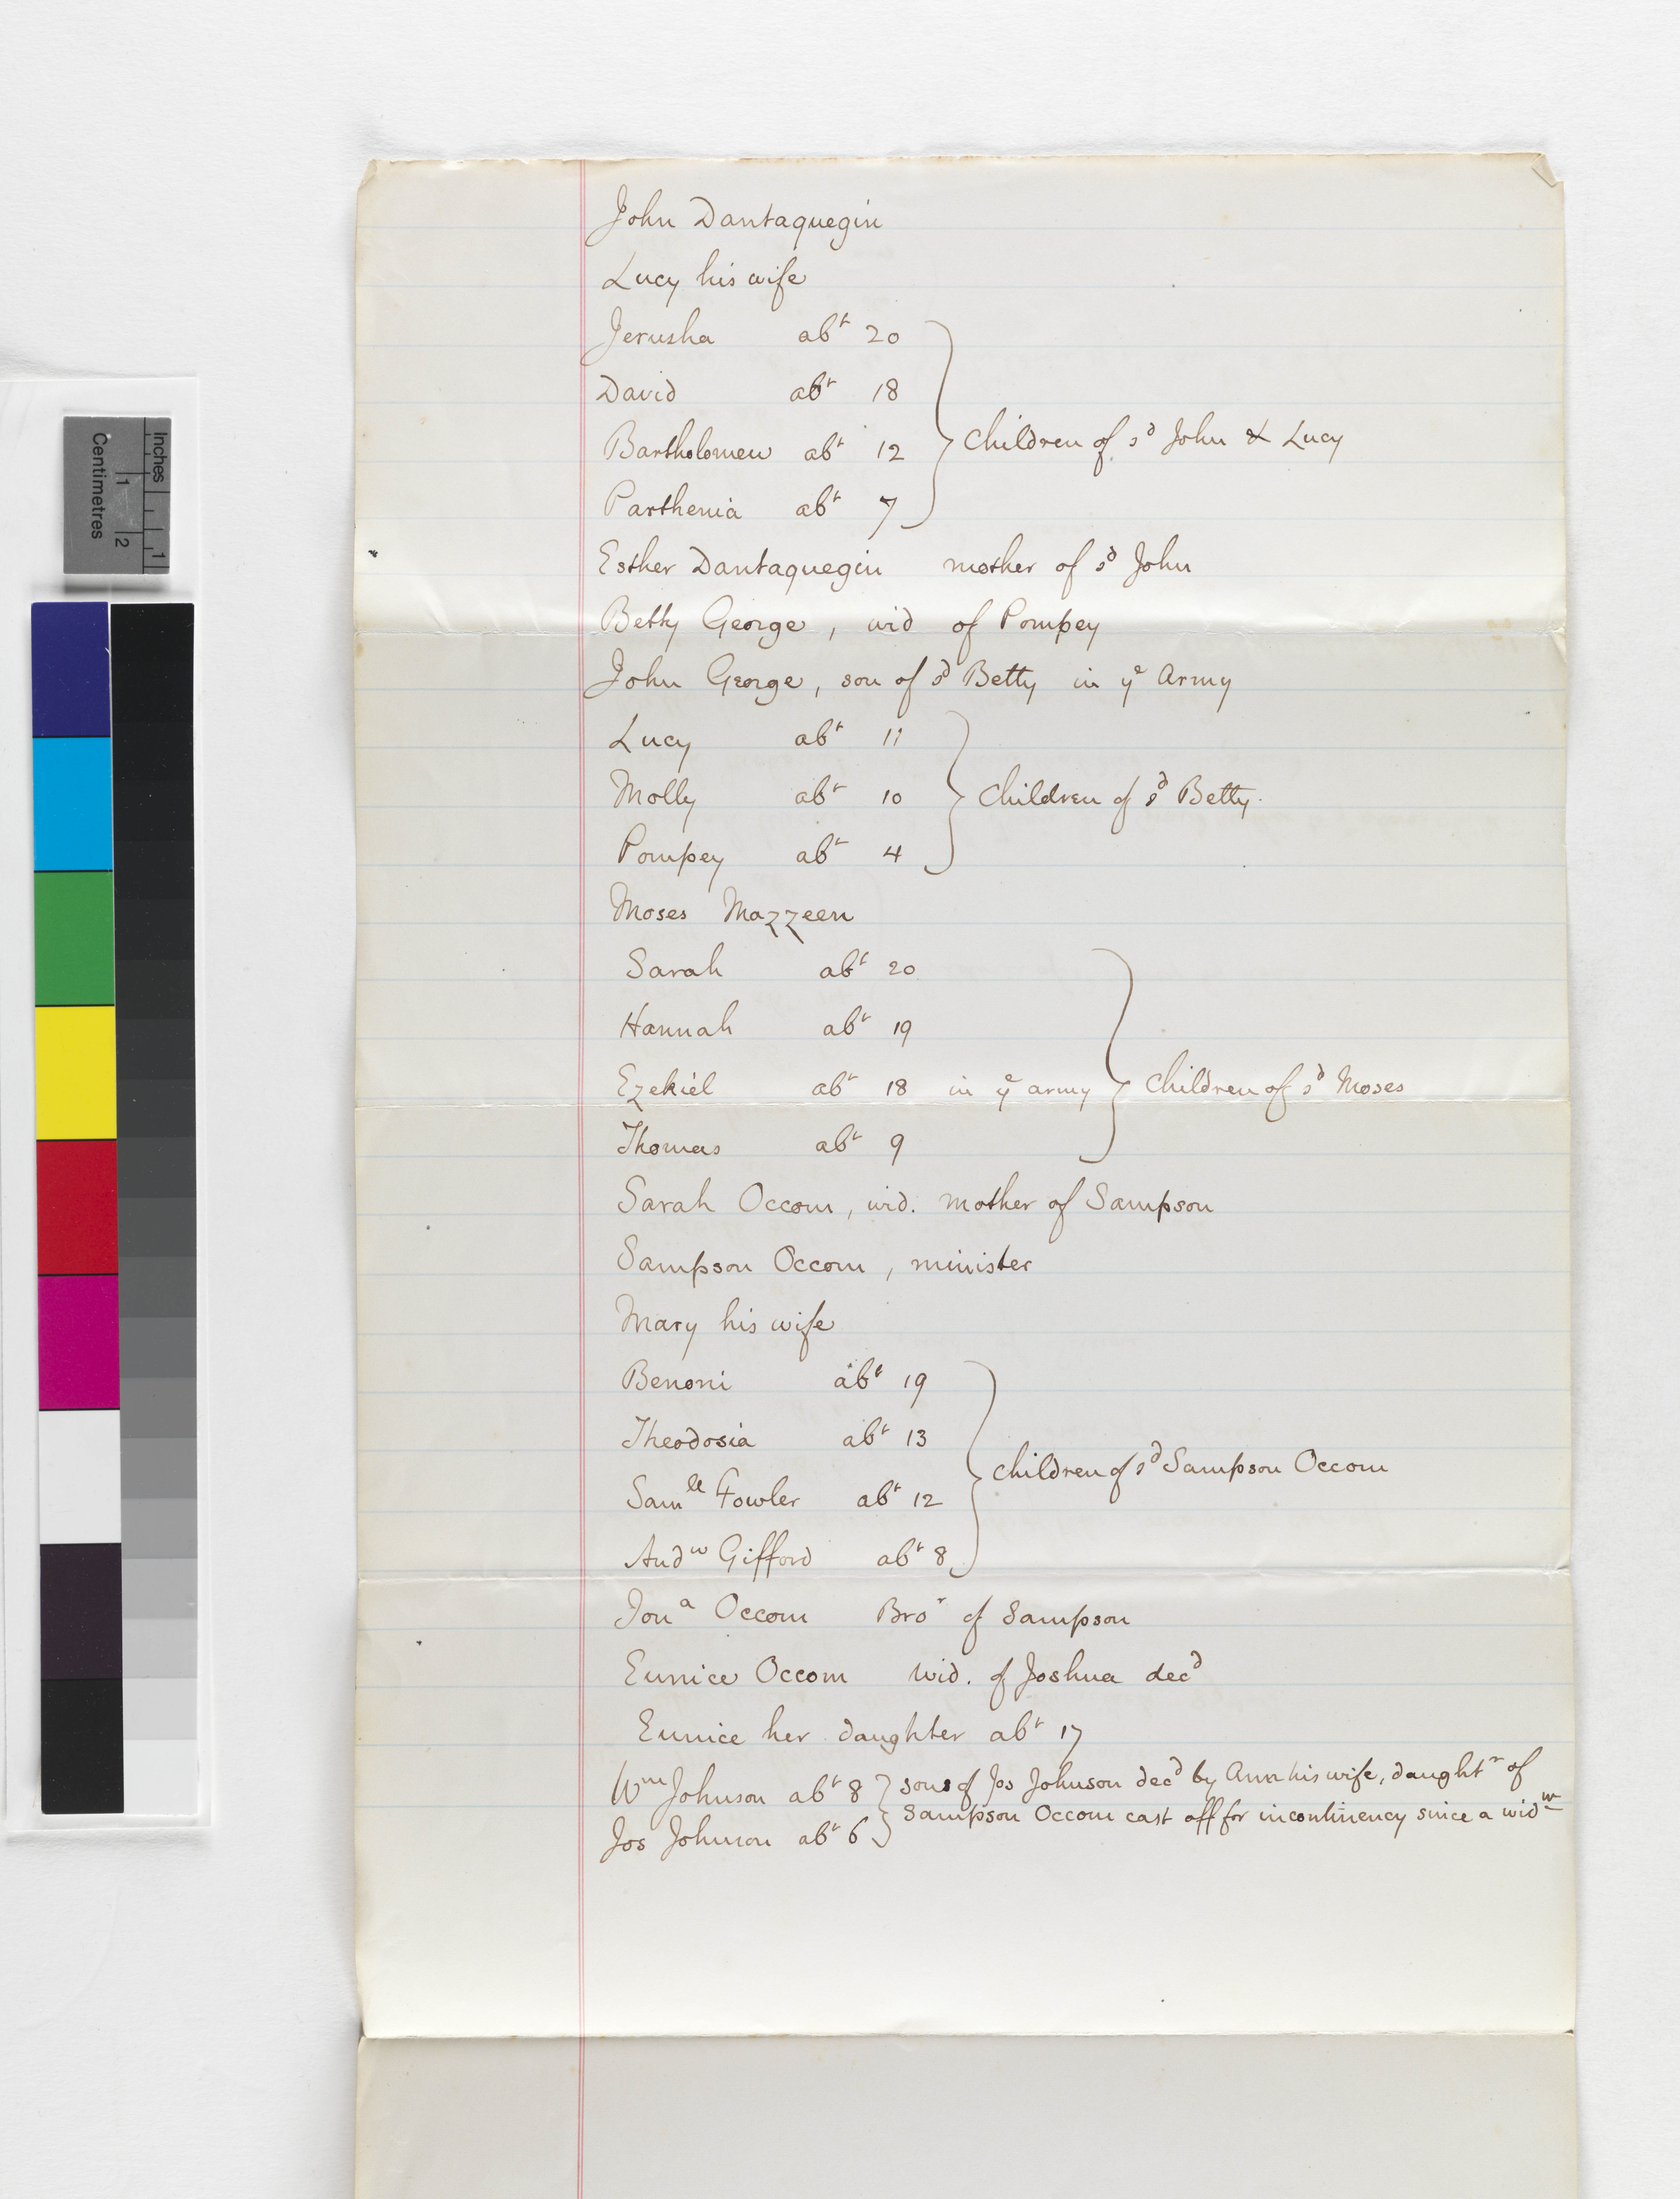 Inches
1
Centimetres
1
2
John Dantaquegin
Lucy his wife
Jerusha abt 20
David abt 18
Bartholomew abt 12 } children of sd John & Lucy
Parthenia abt 7
Esther Dantaquegin mother of sd John
Betty George, wid of Pompey
John George, son of sd Betty in ye Army
Lucy abt 11
Molly abt 10 } children of sd Betty.
Pompey abt 4
Moses Mazzeen
Sarah abt 20
Hannah abt 19
Ezekiel abt 18 in ye army } children of sd Moses
Thomas abt 9
Sarah Occom, wid. mother of Sampson
Sampson Occom, minister
Mary his wife
Benoni abt 19
Theodosia abt 13
Samll Fowler abt 12 } children of sd Sampson Occom
Andw Gifford abt 8
Jona Occom Bror of Sampson
Eunice Occom wid. of Joshua decd
Eunice her daughter abt 17
Wm Johnson abt 8 } sons of Jos Johnson decd by Ann his wife, daughtr of
Jos Johnson abt 6 } Sampson Occom cast off for incontinency since a widw